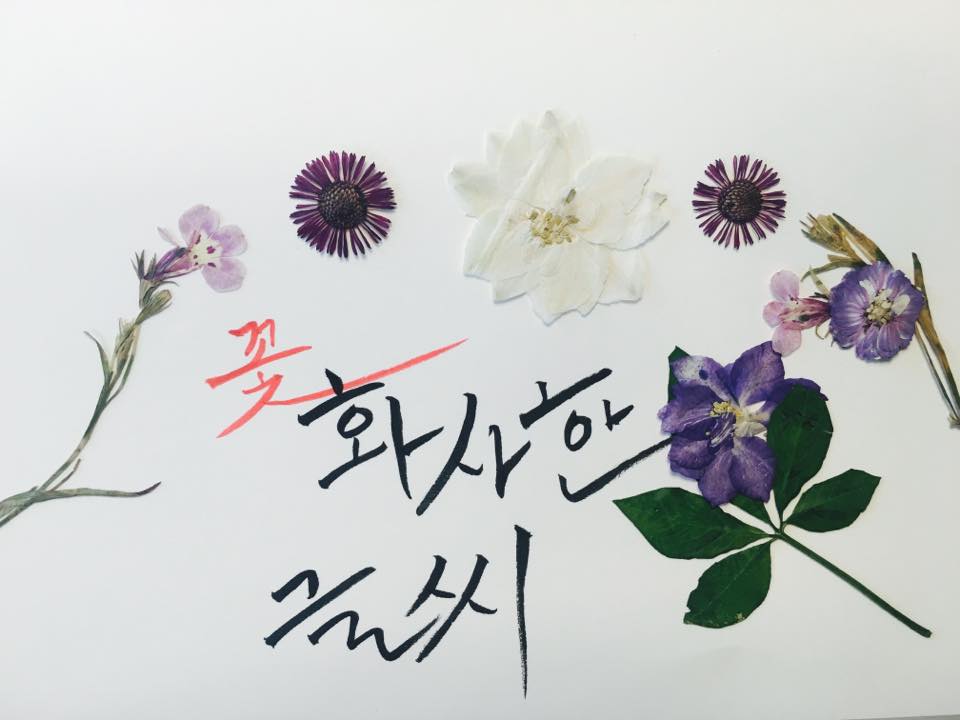 꽃
화사한
글씨